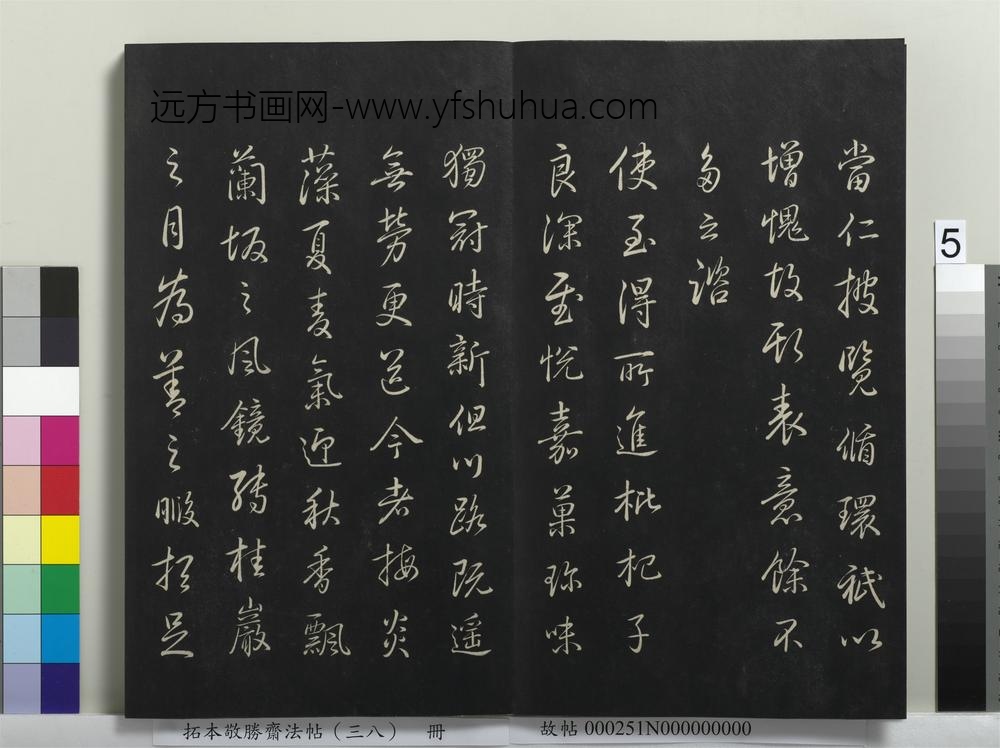 远方书画网-www.yfshuhua.com
當仁披覽循環祗以
增愧故表意餘不
多云諮
使至得所進枇杷子
良深慰悅嘉菓珍味
獨冠時新但川路既遥
無勞更送今者梅炎
藻夏麥氣迎秋香飄
蘭坂之風鏡轉桂巖
之月為善之暇想足
5
拓本敬勝齋法帖（三八） 冊
故帖 000251N000000000